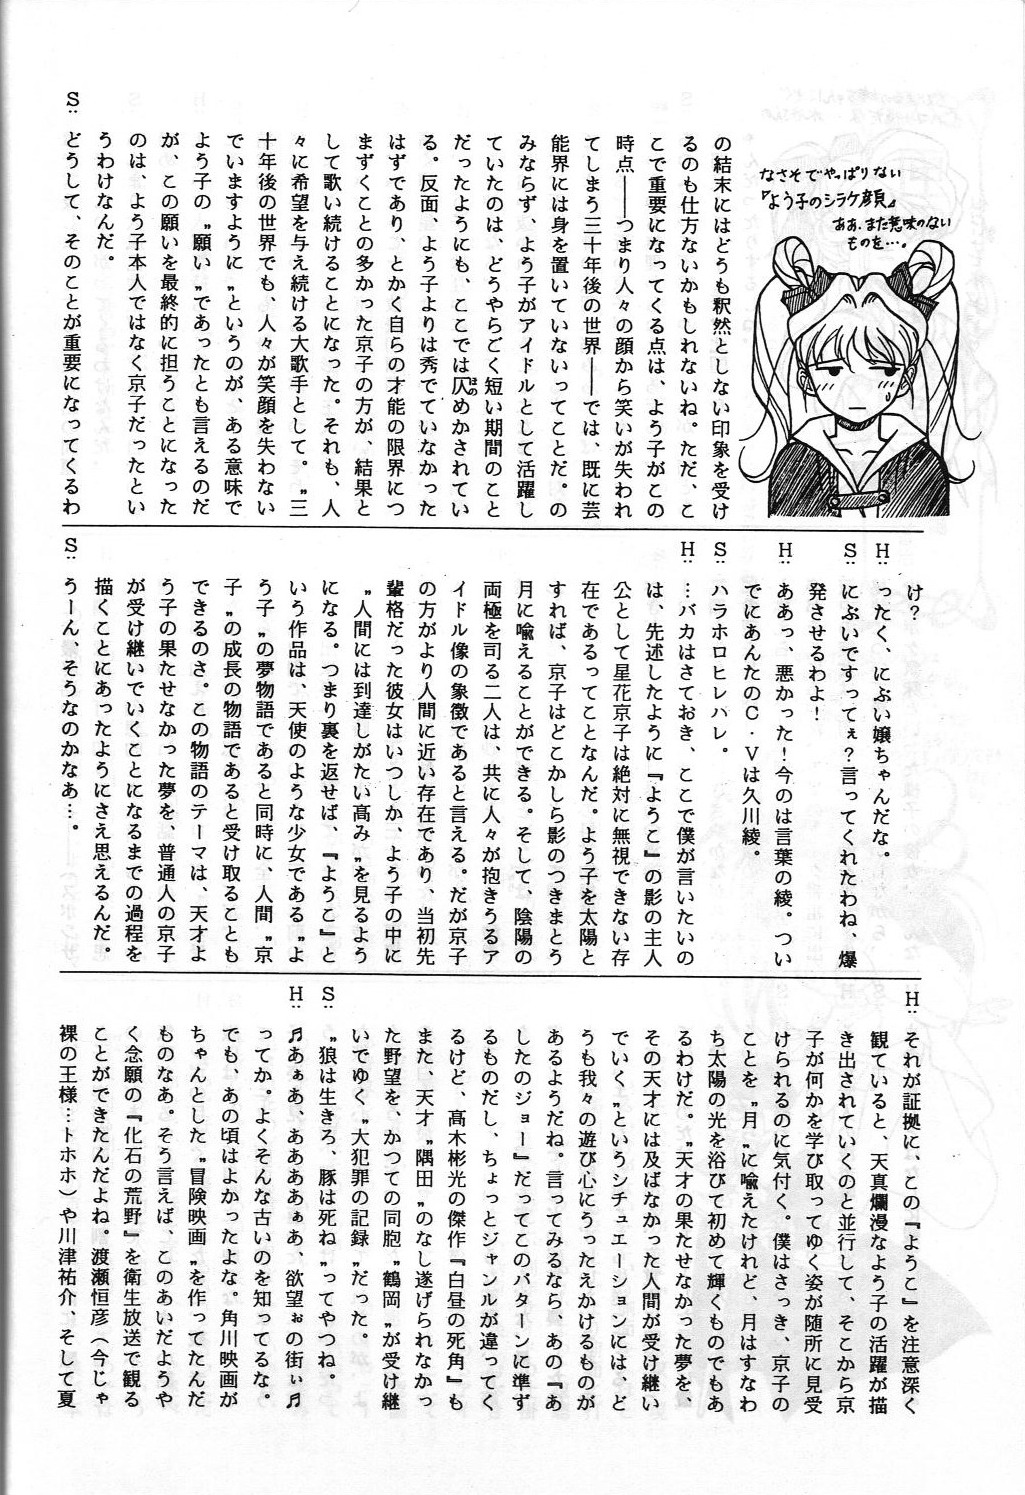 なさそでやっぱりない
『よう子のシラケ顔』
ああ、また意味のない
ものを…。
の結末にはどうも釈然としない印象を受け
るのも仕方ないかもしれないね。ただ、こ
こで重要になってくる点は、よう子がこの
時点――つまり人々の顔から笑いが失われ
てしまう三十年後の世界――では、既に芸
能界には身を置いていないってことだ。の
みならず、よう子がアイドルとして活躍し
ていたのは、どうやらごく短い期間のこと
だったようにも、ここでは仄めかされてい
ほの
る。反面、よう子よりは秀でていなかった
はずであり、とかく自らの才能の限界につ
まずくことの多かった京子の方が、結果と
して歌い続けることになった。それも、人
々に希望を与え続ける大歌手として。〝三
十年後の世界でも、人々が笑顔を失わない
でいますように〟というのが、ある意味で
よう子の〝願い〟であったとも言えるのだ
が、この願いを最終的に担うことになった
のは、よう子本人ではなく京子だったとい
うわけなんだ。
S:どうして、そのことが重要になってくるわ
け？
H:ったく、にぶい嬢ちゃんだな。
S:にぶいですってぇ？言ってくれたわね、爆
発させるわよ！
H:ああっ、悪かった！今のは言葉の綾。つい
でにあんたのＣ・Ｖは久川綾。
S:ハラホロヒレハレ。
H:…バカはさておき、ここで僕が言いたいの
は、先述したように『ようこ』の影の主人
公として星花京子は絶対に無視できない存
在であるってことなんだ。よう子を太陽と
すれば、京子はどこかしら影のつきまとう
月に喩えることができる。そして、陰陽の
両極を司る二人は、共に人々が抱きうるア
イドル像の象徴であると言える。だが京子
の方がより人間に近い存在であり、当初先
輩格だった彼女はいつしか、よう子の中に
〝人間には到達しがたい高み〟を見るよう
になる。つまり裏を返せば、『ようこ』と
いう作品は、天使のような少女である〝よ
う子〟の夢物語であると同時に、人間〝京
子〟の成長の物語であると受け取ることも
できるのさ。この物語のテーマは、天才よ
う子の果たせなかった夢を、普通人の京子
が受け継いでいくことになるまでの過程を
描くことにあったようにさえ思えるんだ。
S:うーん、そうなのかなあ…。
H:それが証拠に、この『ようこ』を注意深く
観ていると、天真爛漫なよう子の活躍が描
き出されていくのと並行して、そこから京
子が何かを学び取ってゆく姿が随所に見受
けられるのに気付く。僕はさっき、京子の
ことを〝月〟に喩えたけれど、月はすなわ
ち太陽の光を浴びて初めて輝くものでもあ
るわけだ。〝天才の果たせなかった夢を、
その天才には及ばなかった人間が受け継い
でいく〟というシチュエーションには、ど
うも我々の遊び心にうったえかけるものが
あるようだね。言ってみるなら、あの『あ
したのジョー』だってこのパターンに準ず
るものだし、ちょっとジャンルが違ってく
るけど、高木彬光の傑作『白昼の死角』も
また、天才〝隅田〟のなし遂げられなかっ
た野望を、かつての同胞〝鶴岡〟が受け継
いでゆく〝大犯罪の記録〟だった。
S:〝狼は生きろ、豚は死ね〟ってやつね。
H:♬あぁあ、ああああぁあ、欲望ぉの街ぃ♬
ってか。よくそんな古いのを知ってるな。
でも、あの頃はよかったよな。角川映画が
ちゃんとした〝冒険映画〟を作ってたんだ
ものなあ。そう言えば、このあいだようや
く念願の『化石の荒野』を衛生放送で観る
ことができたんだよね。渡瀬恒彦（今じゃ
裸の王様…トホホ）や川津祐介、そして夏